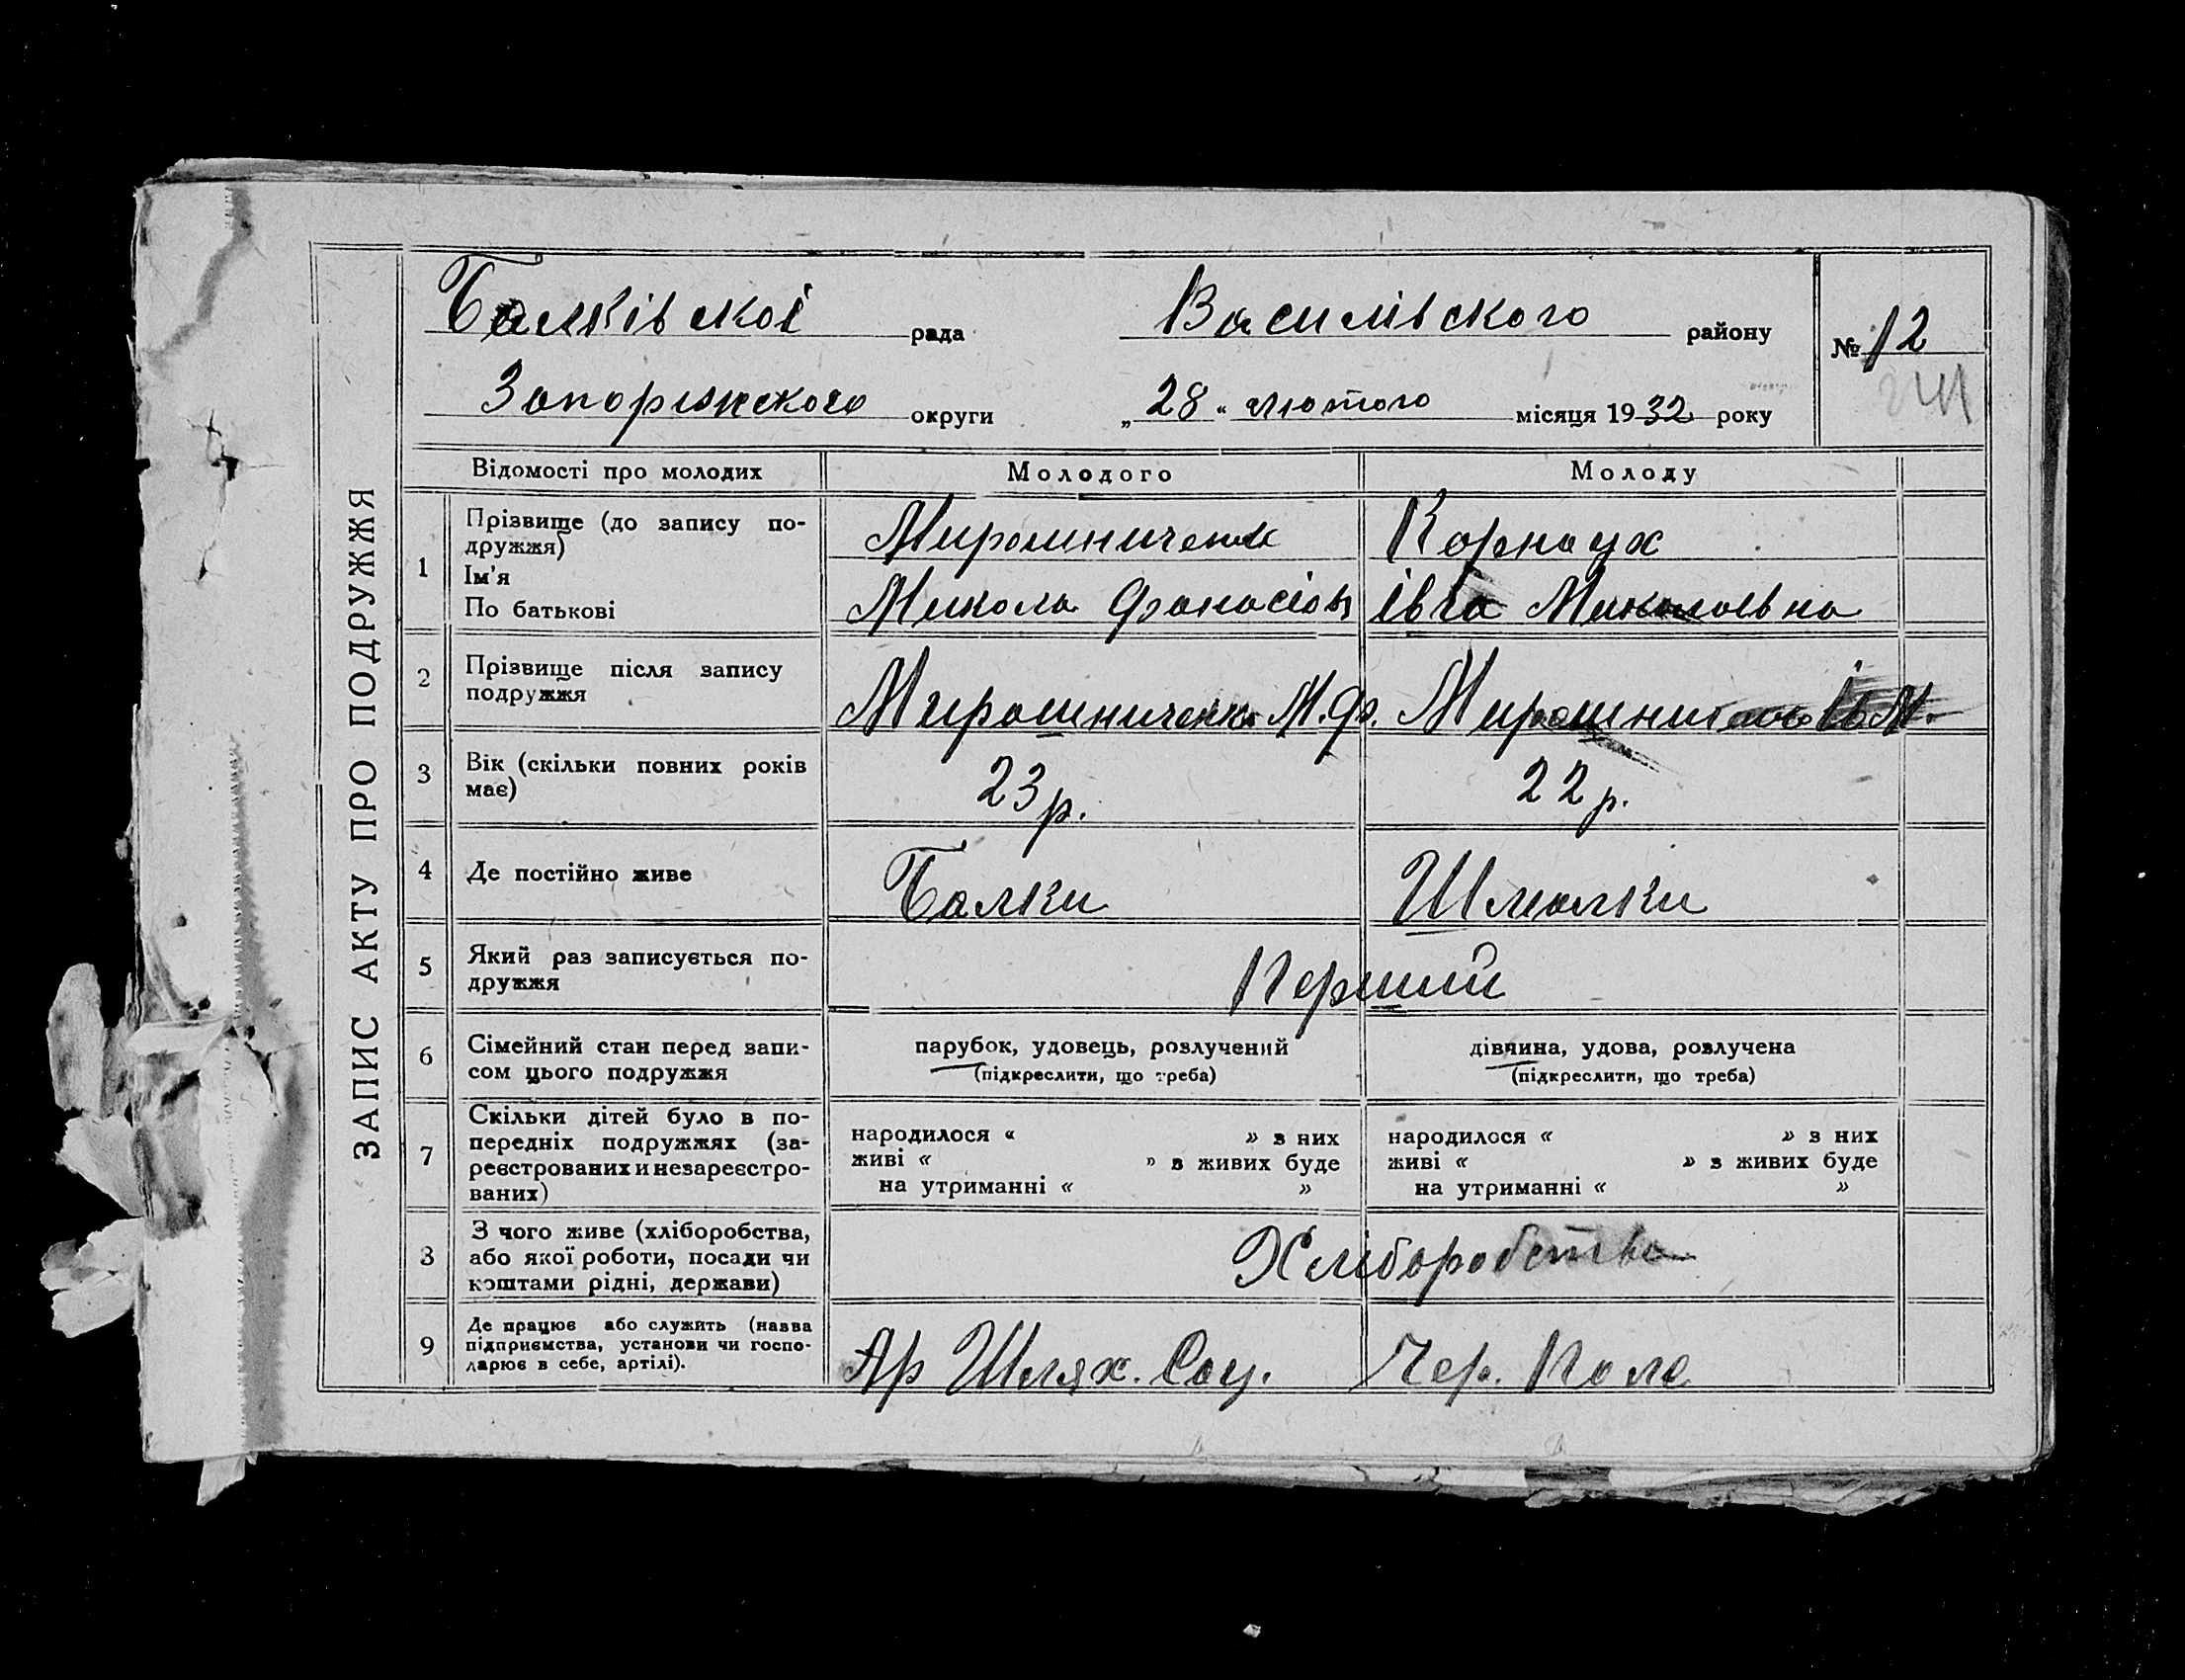 ЗАПИС АКТУ ПРО ПОДРУЖЖЯ
Балківскоі рада Василівского району № 12
Запоріжского округи „28“ лютого місяця 1932 року
Відомості про молодих Молодого Молоду
1 Прізвище (до запису по-
дружжя) Мирошниченко Корнаух
Ім'я
По батькові Микола Фанасіов Івга Миколаівна
2 Прізвище після запису
подружжя Мирошниченко М.Ф. Мирошниченко Ів М.
3 Вік (скільки повних років
має) 23 р. 22 р.
4 Де постійно живе Балки Шмалки
5 Який раз записується по-
дружжя Перший
6 Сімейний стан перед запи-
сом цього подружжя парубок, удовець, розлучений дівчина, удова, розлучена
(підкреслити, що треба) (підкреслити, що треба)
7 Скільки дітей було в по-
передніх подружжях (за-
реєстрованих и незареєстро-
ваних)
народилося « » з них народилося « » з них
живі « » з живих буде живі « » з живих буде
на утриманні « » на утриманні « »
8 З чого живе (хліборобства,
або якої роботи, посади чи
коштами рідні, держави) Хліборобства
9 Де працює або служить (назва
підприємства, установи чи госпо-
дарює в себе, артілі). Ар Шлях. Соц. Чер. Поле